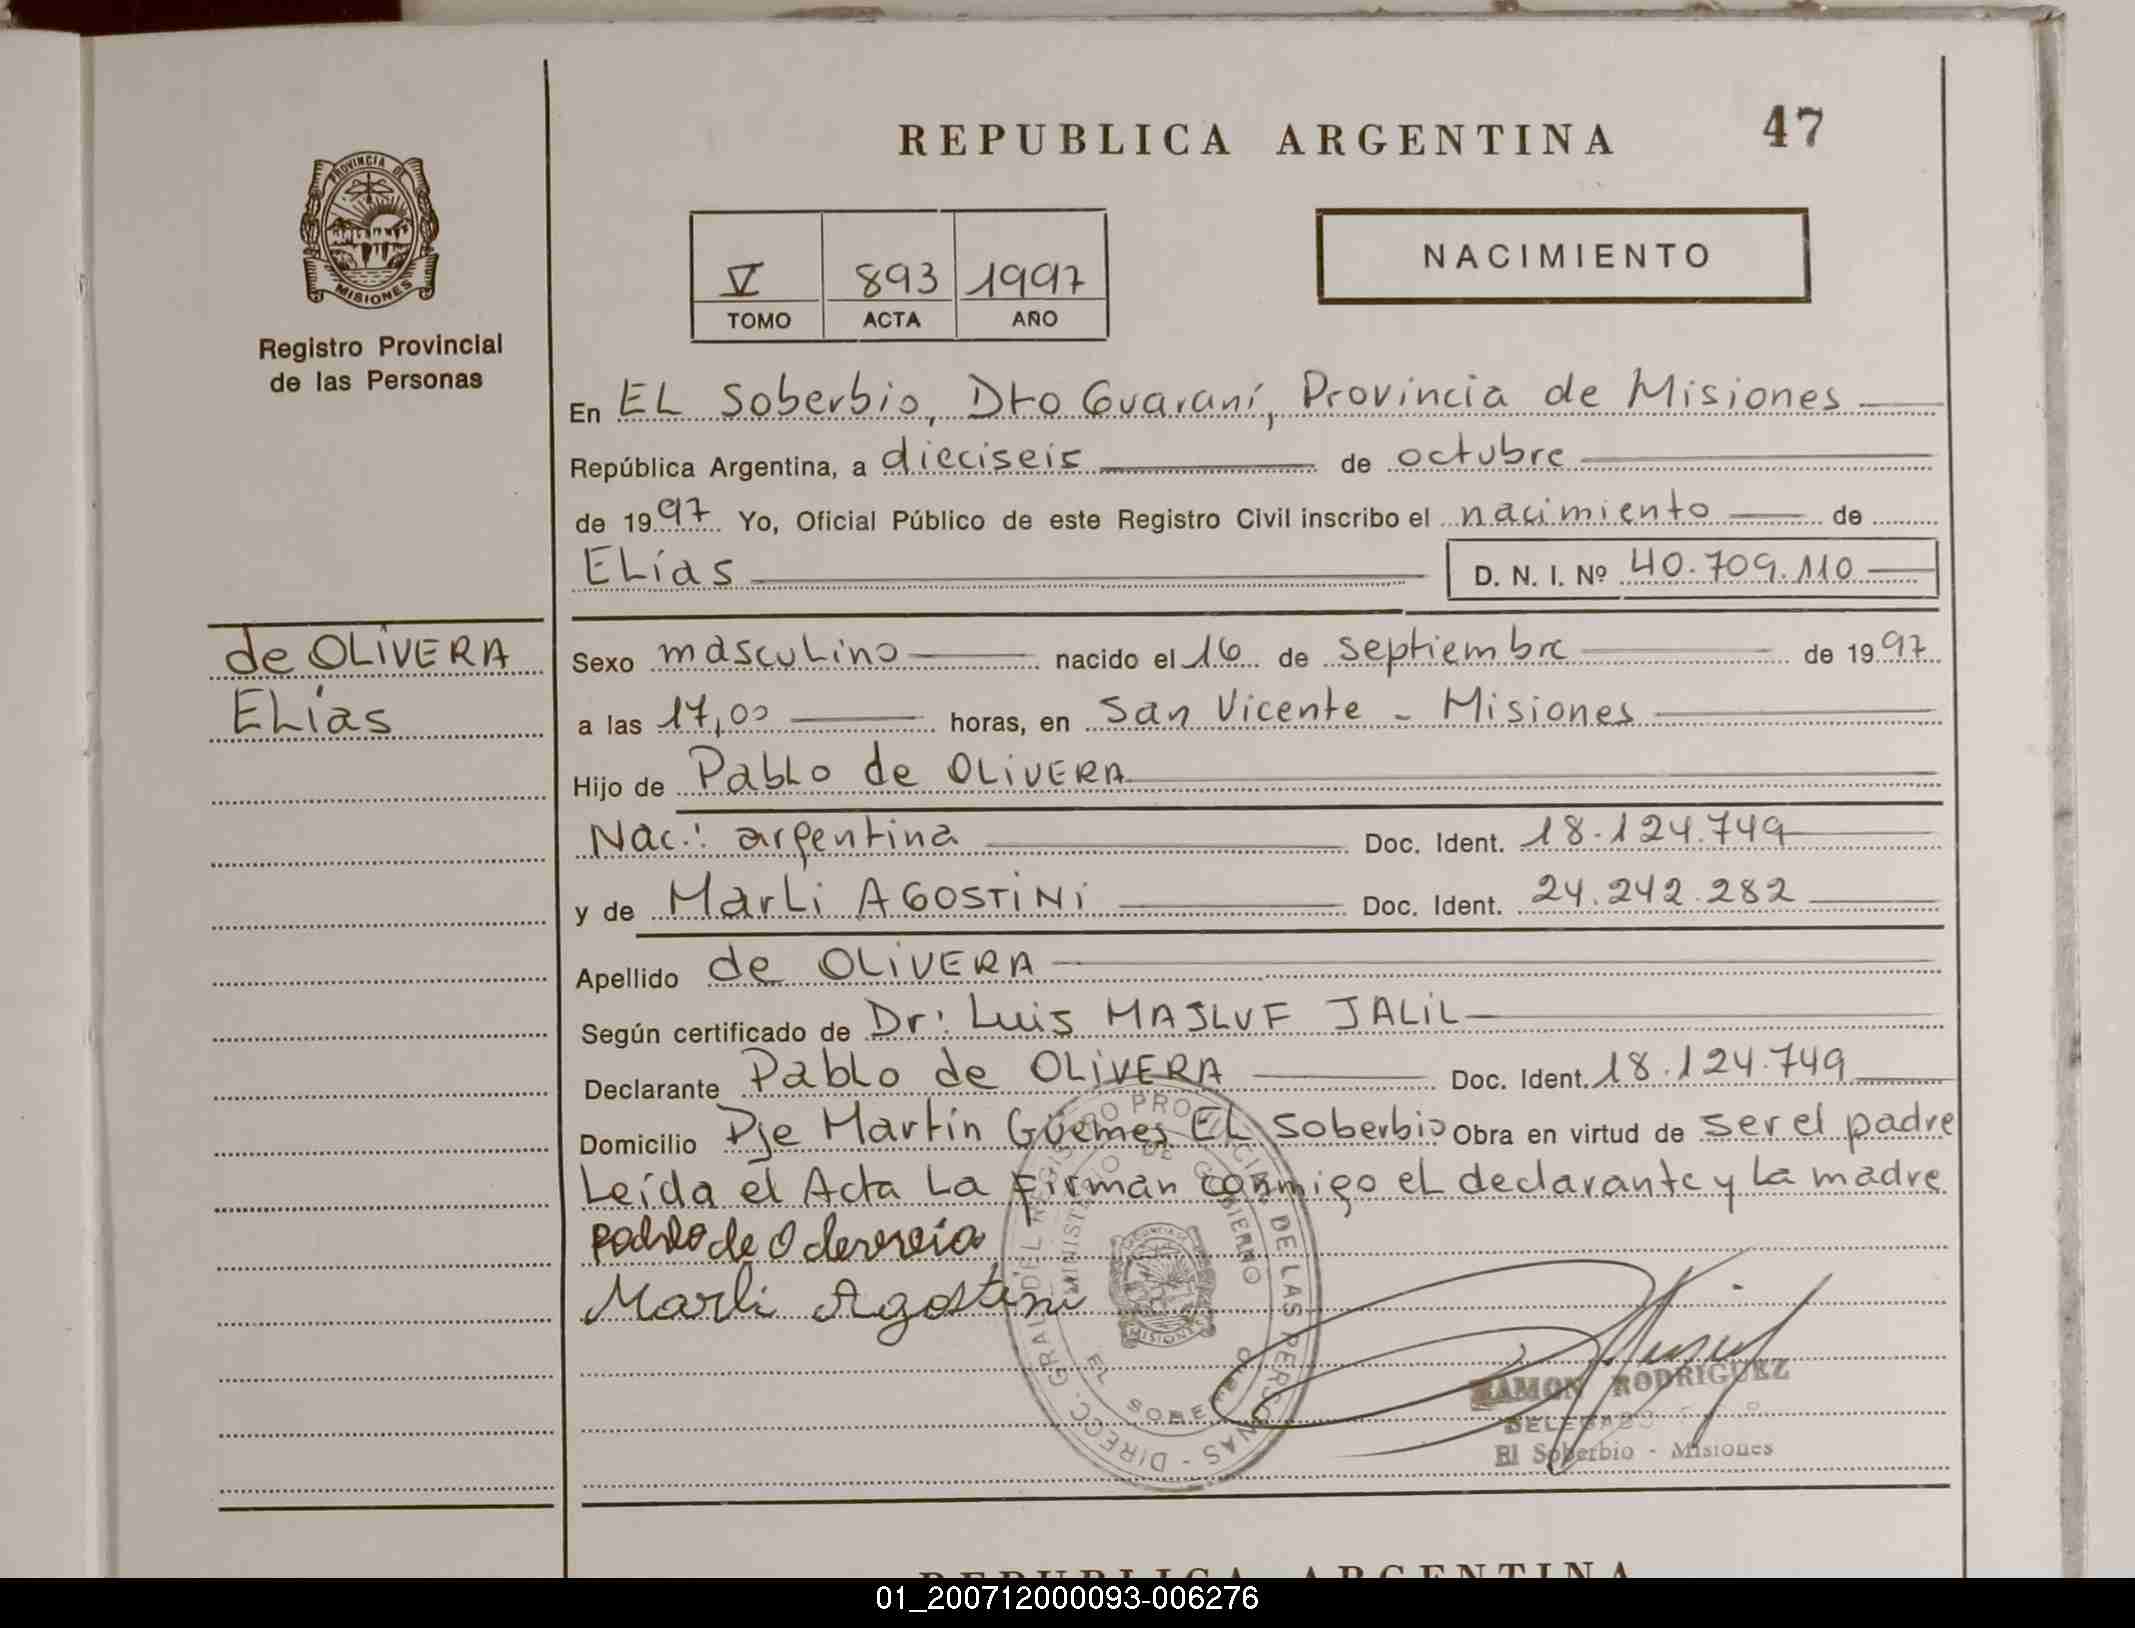 REPUBLICA ARGENTINA
47
PROVINCIA DE
MISIONES
Registro Provincial
de las Personas
V 893 1997
TOMO ACTA AÑO
NACIMIENTO
En EL Soberbio, Dto Guaraní, Provincia de Misiones
República Argentina, a dieciseis de octubre
de 1997 Yo, Oficial Público de este Registro Civil inscribo el nacimiento de
ELías D. N. I. Nº 40.709.110
de OLIVERA
ELías
Sexo masculino nacido el 16 de septiembre de 1997
a las 17,00 horas, en San Vicente - Misiones
Hijo de Pablo de OLIVERA
Nac.: argentina Doc. Ident. 18.124.749
y de Marli AGOSTINI Doc. Ident. 24.242.282
Apellido de OLIVERA
Según certificado de Dr: Luis MASLUF JALIL
Declarante Pablo de OLIVERA Doc. Ident. 18.124.749
Domicilio Pje Martín Güemes EL Soberbio Obra en virtud de ser el padre
Leída el Acta La firman conmigo el declarante y La madre
Marli Agostini
DIRECC. GRAL DEL REGISTRO PROVINCIAL DE LAS PERSONAS
MINISTERIO DE GOBIERNO
MISIONES
EL SOBERBIO
RAMON RODRIGUEZ
DELEGADO
El Soberbio - Misiones
REPUBLICA ARGENTINA
01_200712000093-006276